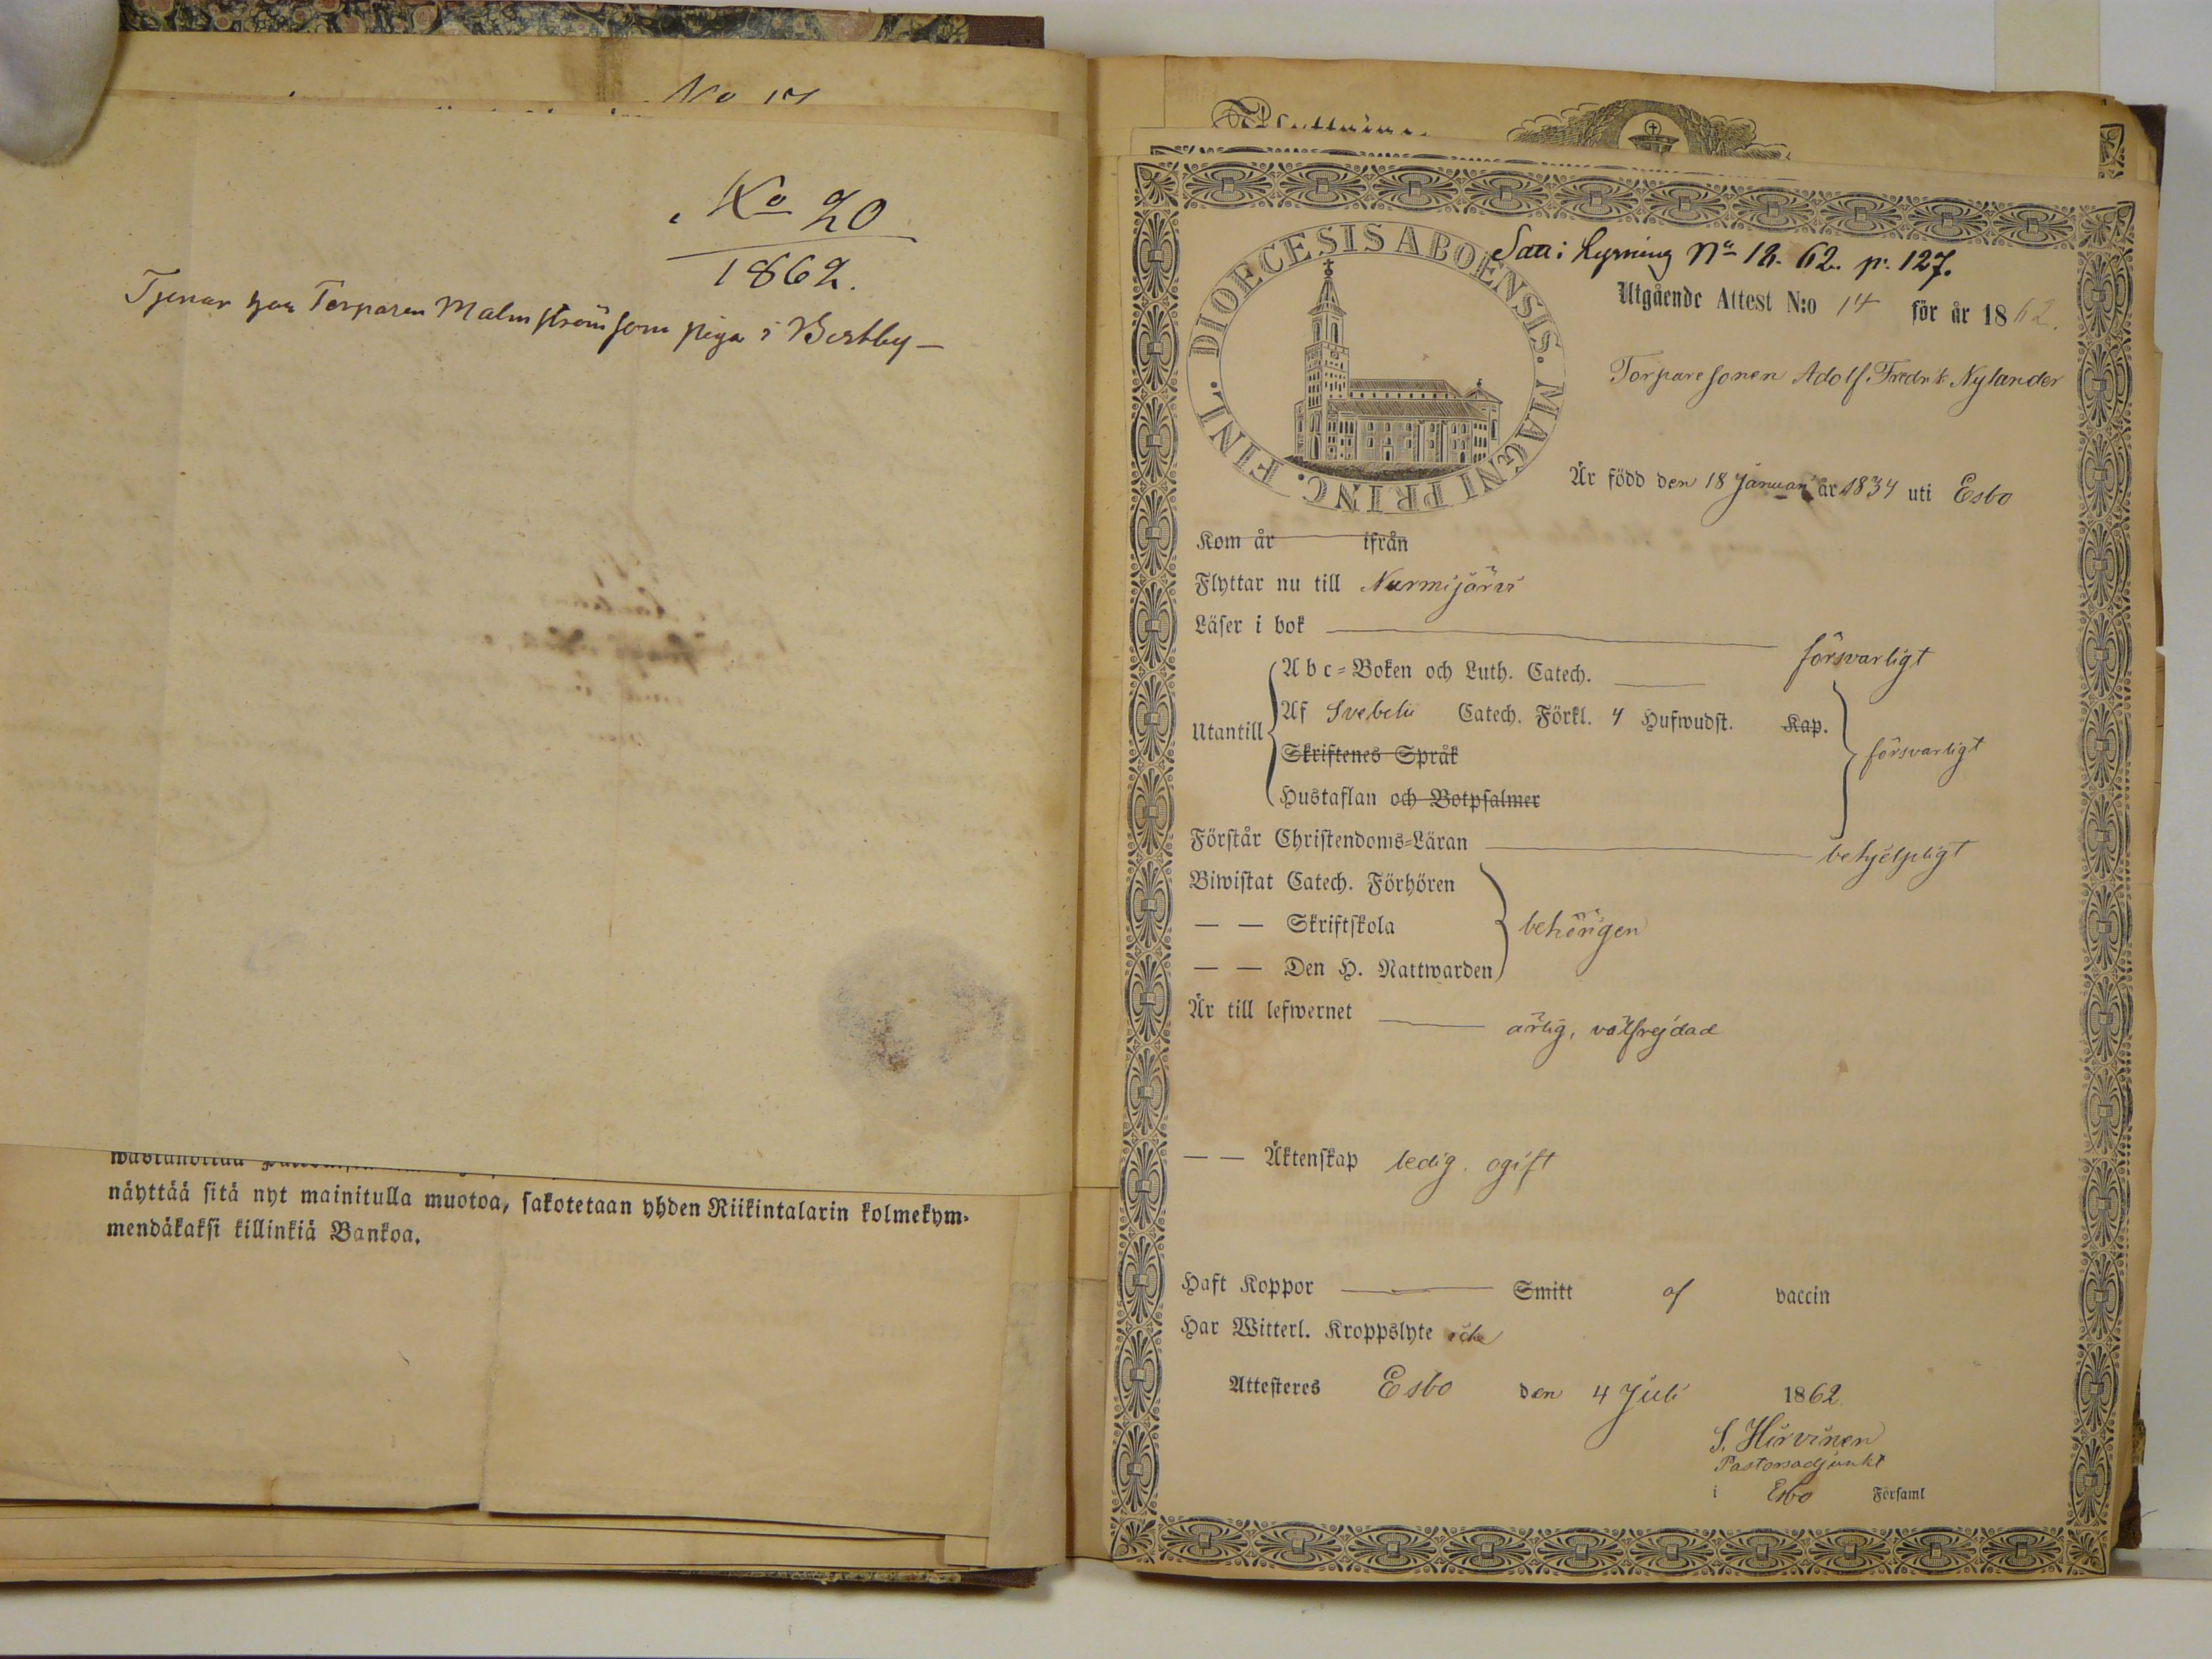 No 17
No 20
1862.
Tjenar hos Torparen Malmström som piga i Bertby —
näyttää sitä nyt mainitulla muotoa, sakotetaan yhden Riikintalarin kolmekym-
mendäkaksi killinkiä Bankoa.
DIOECESIS ABOENSIS. MAGNI PRINC. FINL.
Lysning No 18. 62. p. 127.
Utgående Attest N:o 14 för år 1862.
Torparesonen Adolf Fredrik Nylander
Är född den 18 Januari år 1834 uti Esbo
Kom år ifrån
Flyttar nu till Nurmijärvi
Läser i bok försvarligt
Abc=Boken och Luth. Catech.
Utantill
Af Svebelii Catech. Förkl. 4 Hufwudst. Kap.
Skriftenes Språk
försvarligt
Hustaflan och Botpsalmer
Förstår Christendoms=Läran behjelpligt
Biwistat Catech. Förhören
— — Skriftskola behörigen
— — Den H. Nattwarden
Är till lefwernet ärlig, välfrejdad
— — Äktenskap ledig. ogift
Haft Koppor Smitt af vaccin
Har Witterl. Kroppslyte icke
Attesteres Esbo den 4 Juli 1862
S. Hirvinen
Pastorsadjunkt
i Esbo Församl